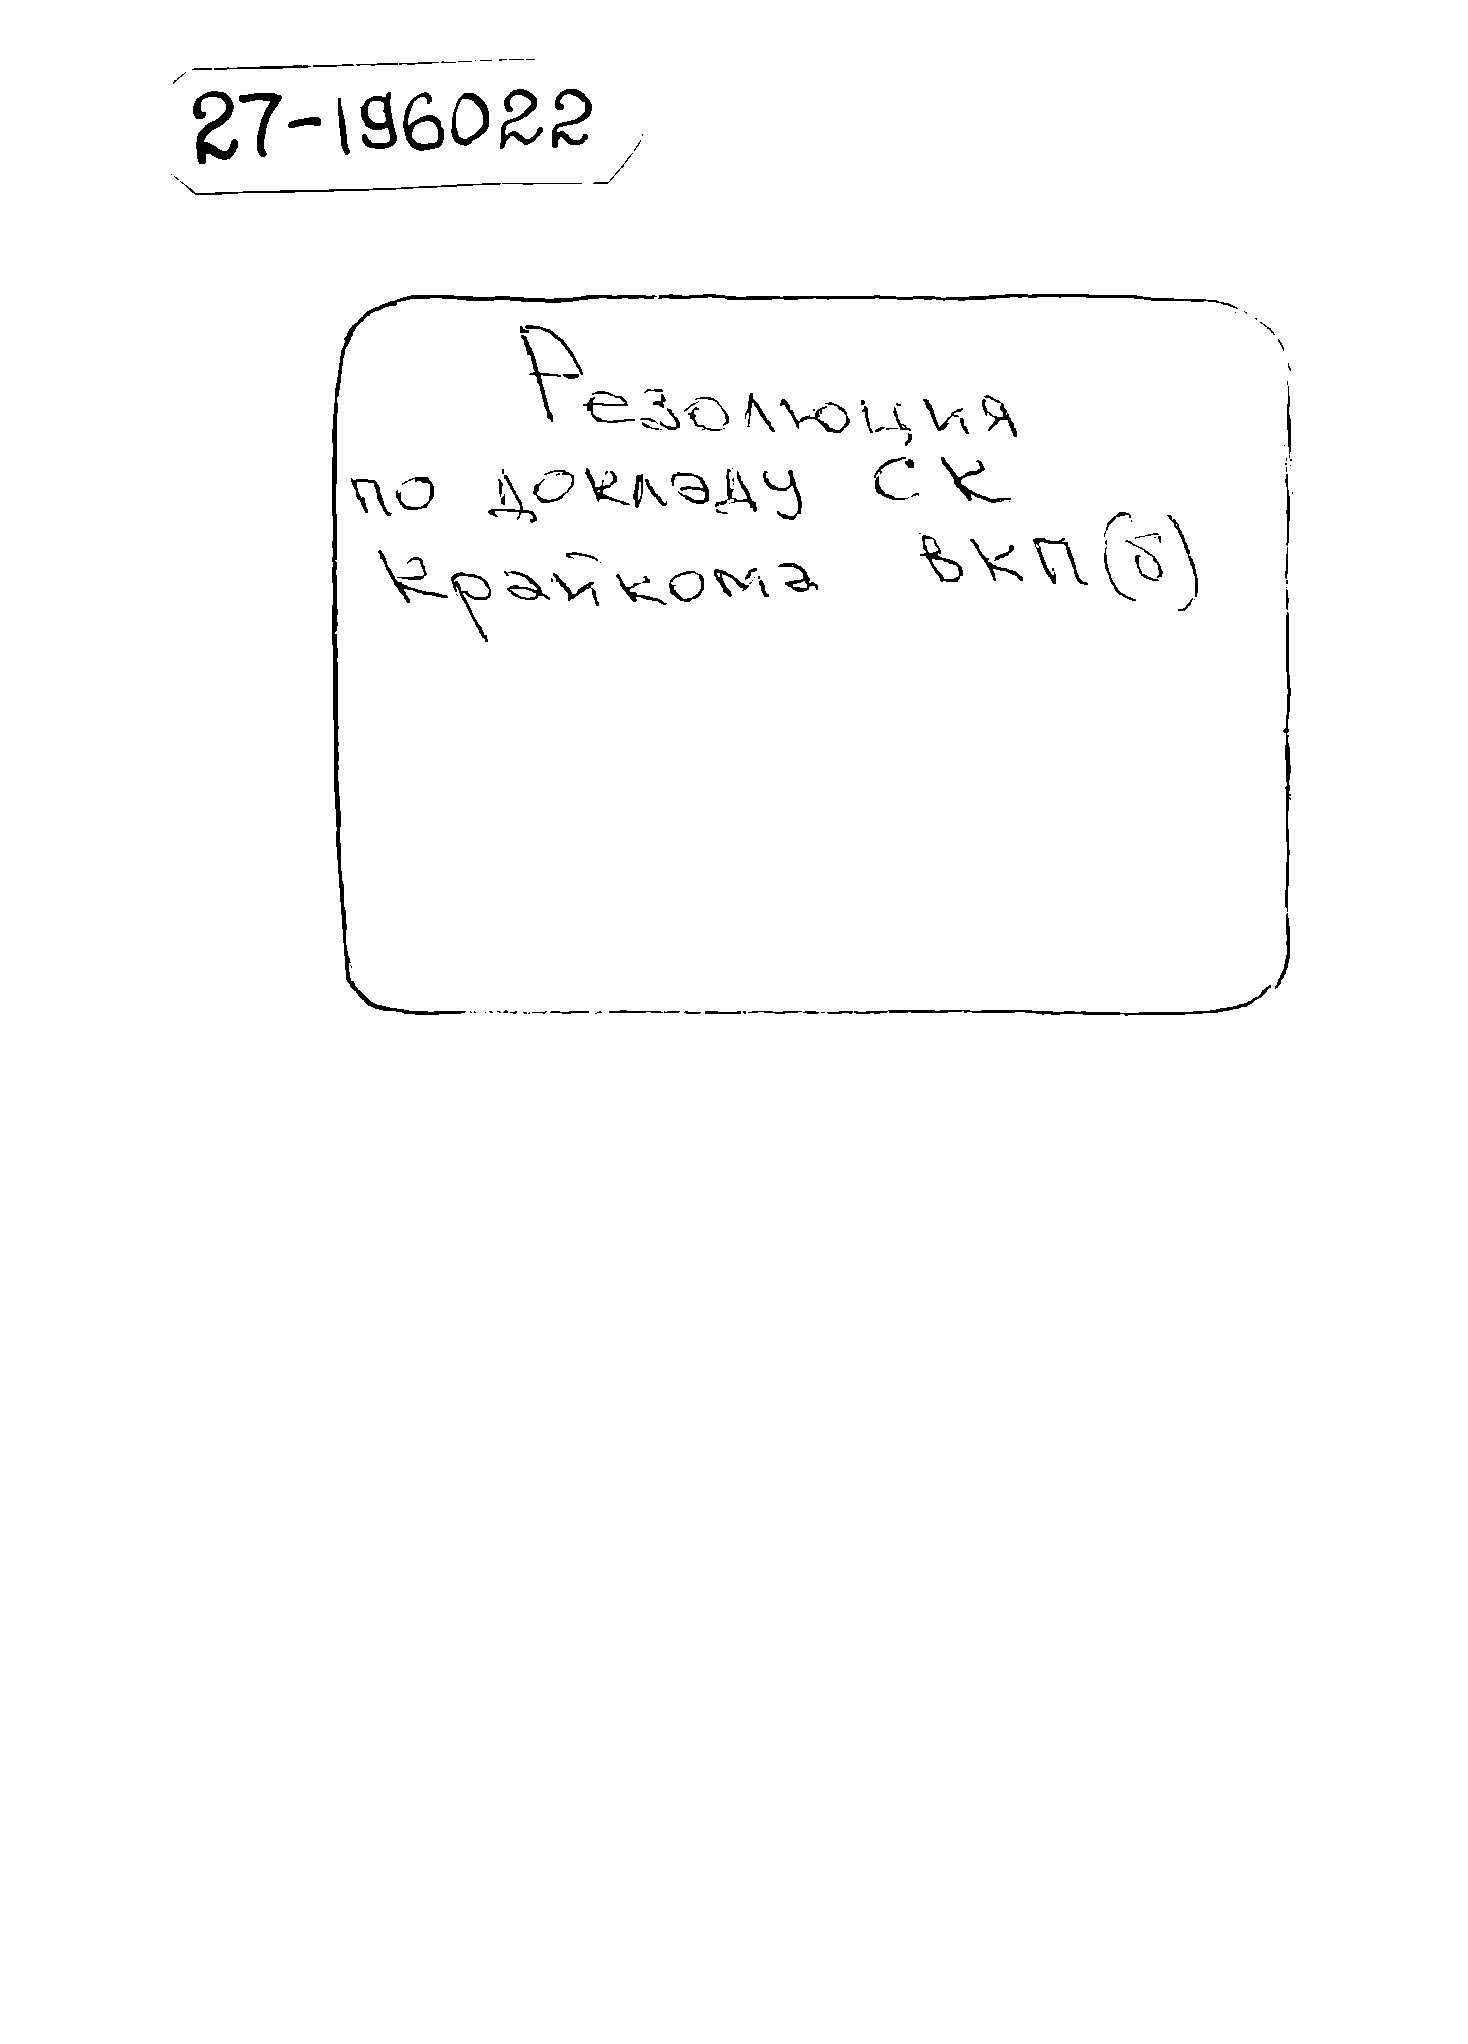 27-196022
Резолюция
по докладу СК
Крайкома ВКП(б)